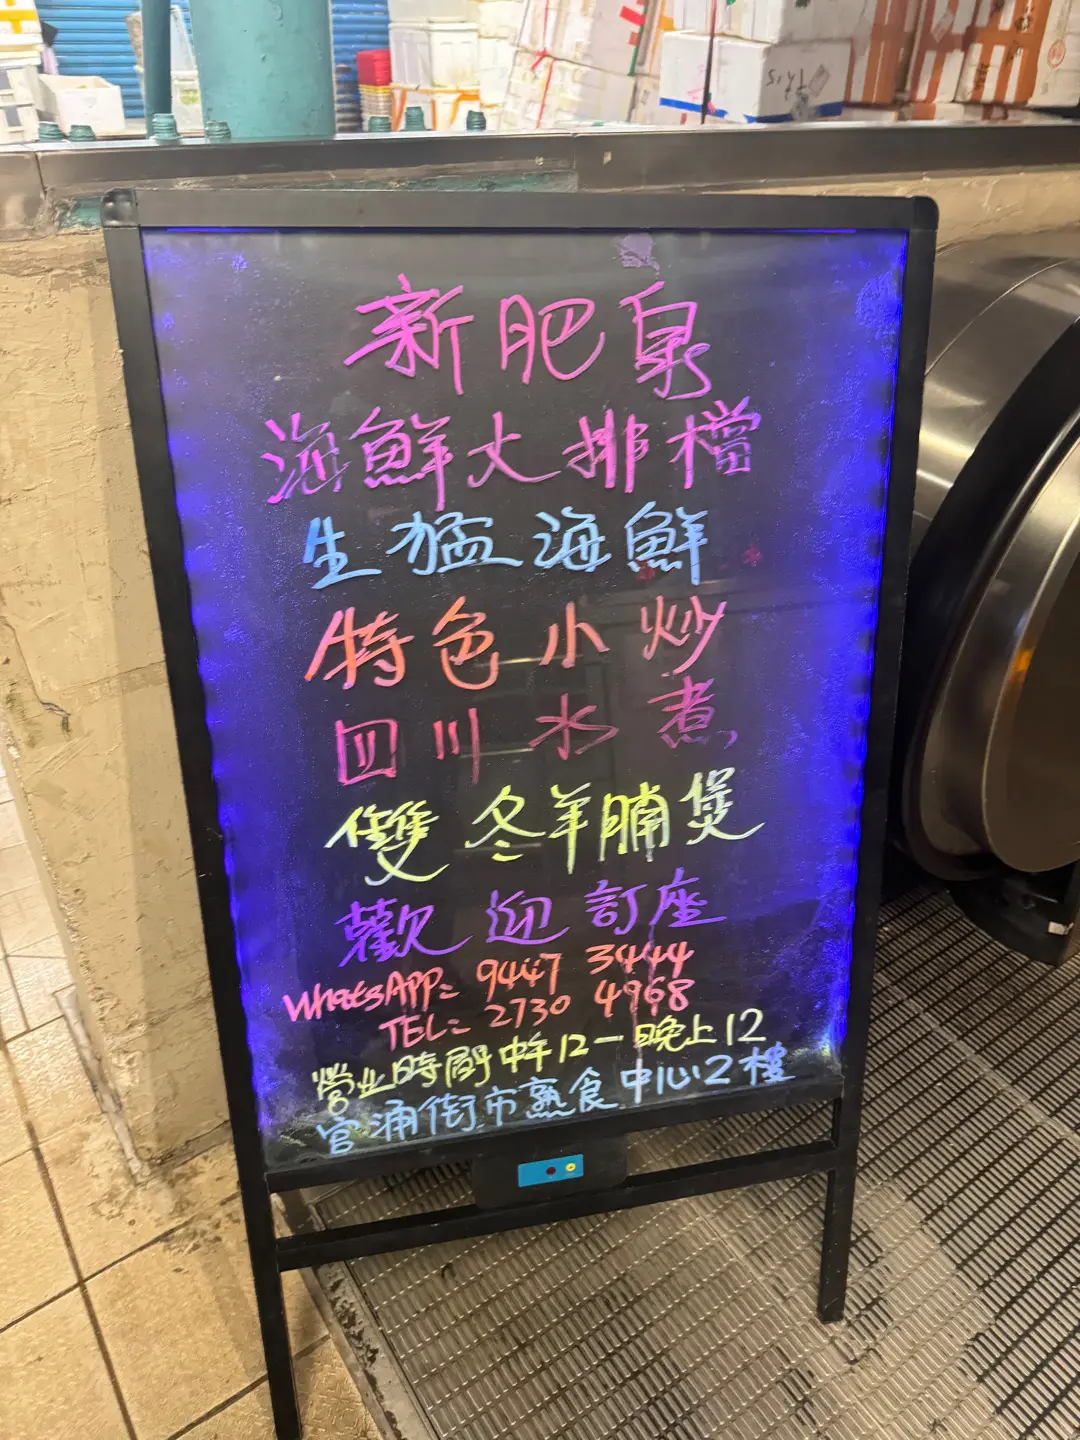 新肥泉
海鮮大排檔
生猛海鮮
特色小炒
四川水煮
雙冬羊腩煲
歡迎訂座
WhatsAPP= 9447 3444
TEL= 2730 4968
營业時間 中午12一晚上12
官涌街市熟食中心2樓